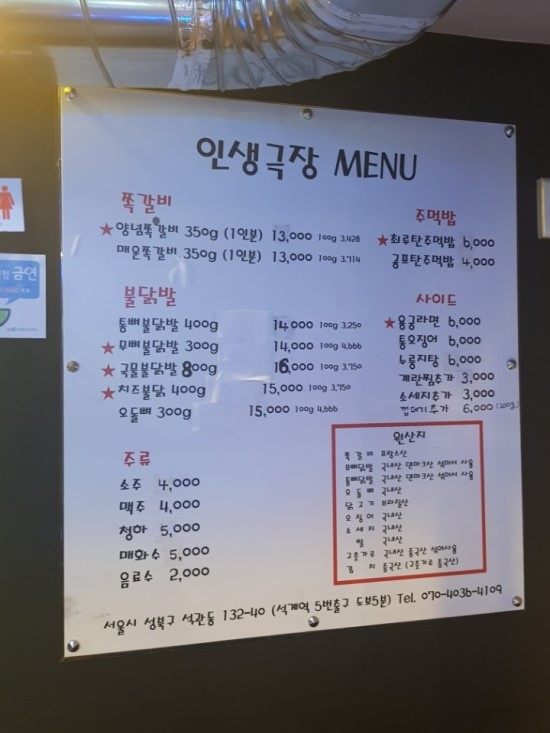 인생극장 MENU
쪽갈비
★양념쪽갈비 350g (1인분) 13,000 100g 3,428
매운쪽갈비 350g (1인분) 13,000 100g 3,714
불닭발
통뼈불닭발 400g 14,000 100g 3,250
★무뼈불닭발 300g 14,000 100g 4,666
★국물불닭발 800g 16,000 100g 3,750
★치즈불닭 400g 15,000 100g 3,750
오돌뼈 300g 15,000 100g 4,666
주류
소주 4,000
맥주 4,000
청하 5,000
매화수 5,000
음료수 2,000
주먹밥
★최루탄주먹밥 6,000
공포탄주먹밥 4,000
사이드
★용궁라면 6,000
통오징어 6,000
누룽지탕 6,000
계란찜추가 3,000
소세지추가 3,000
껍데기추가 6,000 (200g)
원산지
쪽갈비 프랑스산
무뼈닭발 국내산 덴마크산 섞어서 사용
통뼈닭발 국내산 덴마크산 섞어서 사용
오돌뼈 국내산
닭고기 브라질산
오징어 국내산
소세지 국내산
쌀 국내산
고춧가루 국내산 중국산 섞어사용
김치 중국산 (고춧가루 중국산)
서울시 성북구 석관동 132-40 (석계역 5번출구 도보5분) Tel. 070-4036-4109
금연